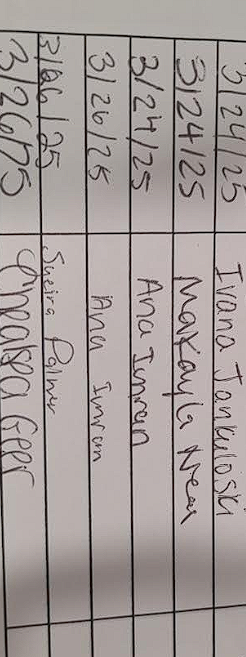 3/24/25 Ivana Jankuloski
3/24/25 Makayla Near
3/24/25 Ana Imran
3/26/25 Ana Imran
3/26/25 Palmer
3/26/25 Chealsea Geer